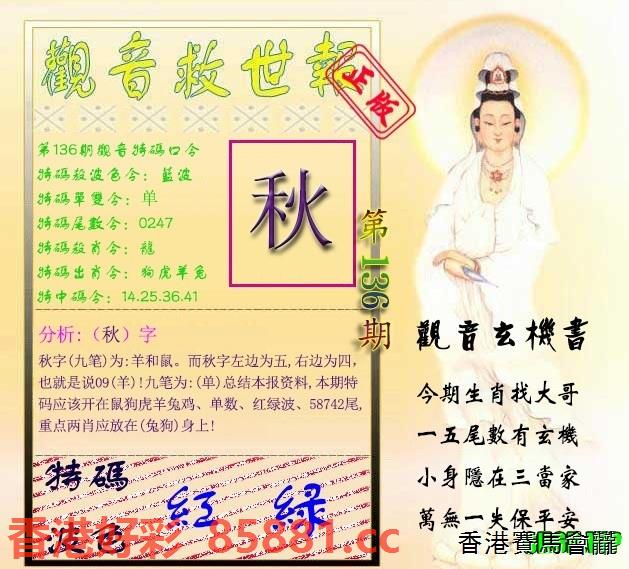 觀音救世報
正版
第136期觀音特碼口令
特碼殺波色令：藍波
特碼單雙令：单
特碼尾數令：0247
特碼殺肖令：龍
特碼出肖令：狗虎羊兔
特中碼令：14.25.36.41
秋
第136期
分析:（秋）字
秋字(九笔)为:羊和鼠。而秋字左边为五,右边为四，
也就是说09(羊)!九笔为:(单)总结本报资料,本期特
码应该开在鼠狗虎羊兔鸡、单数、红绿波、58742尾,
重点两肖应放在(兔狗)身上!
觀音玄機書
今期生肖找大哥
一五尾數有玄機
小身隱在三當家
萬無一失保平安
特碼
波色
紅 綠
香港好彩 85881.cc
香港賽馬會